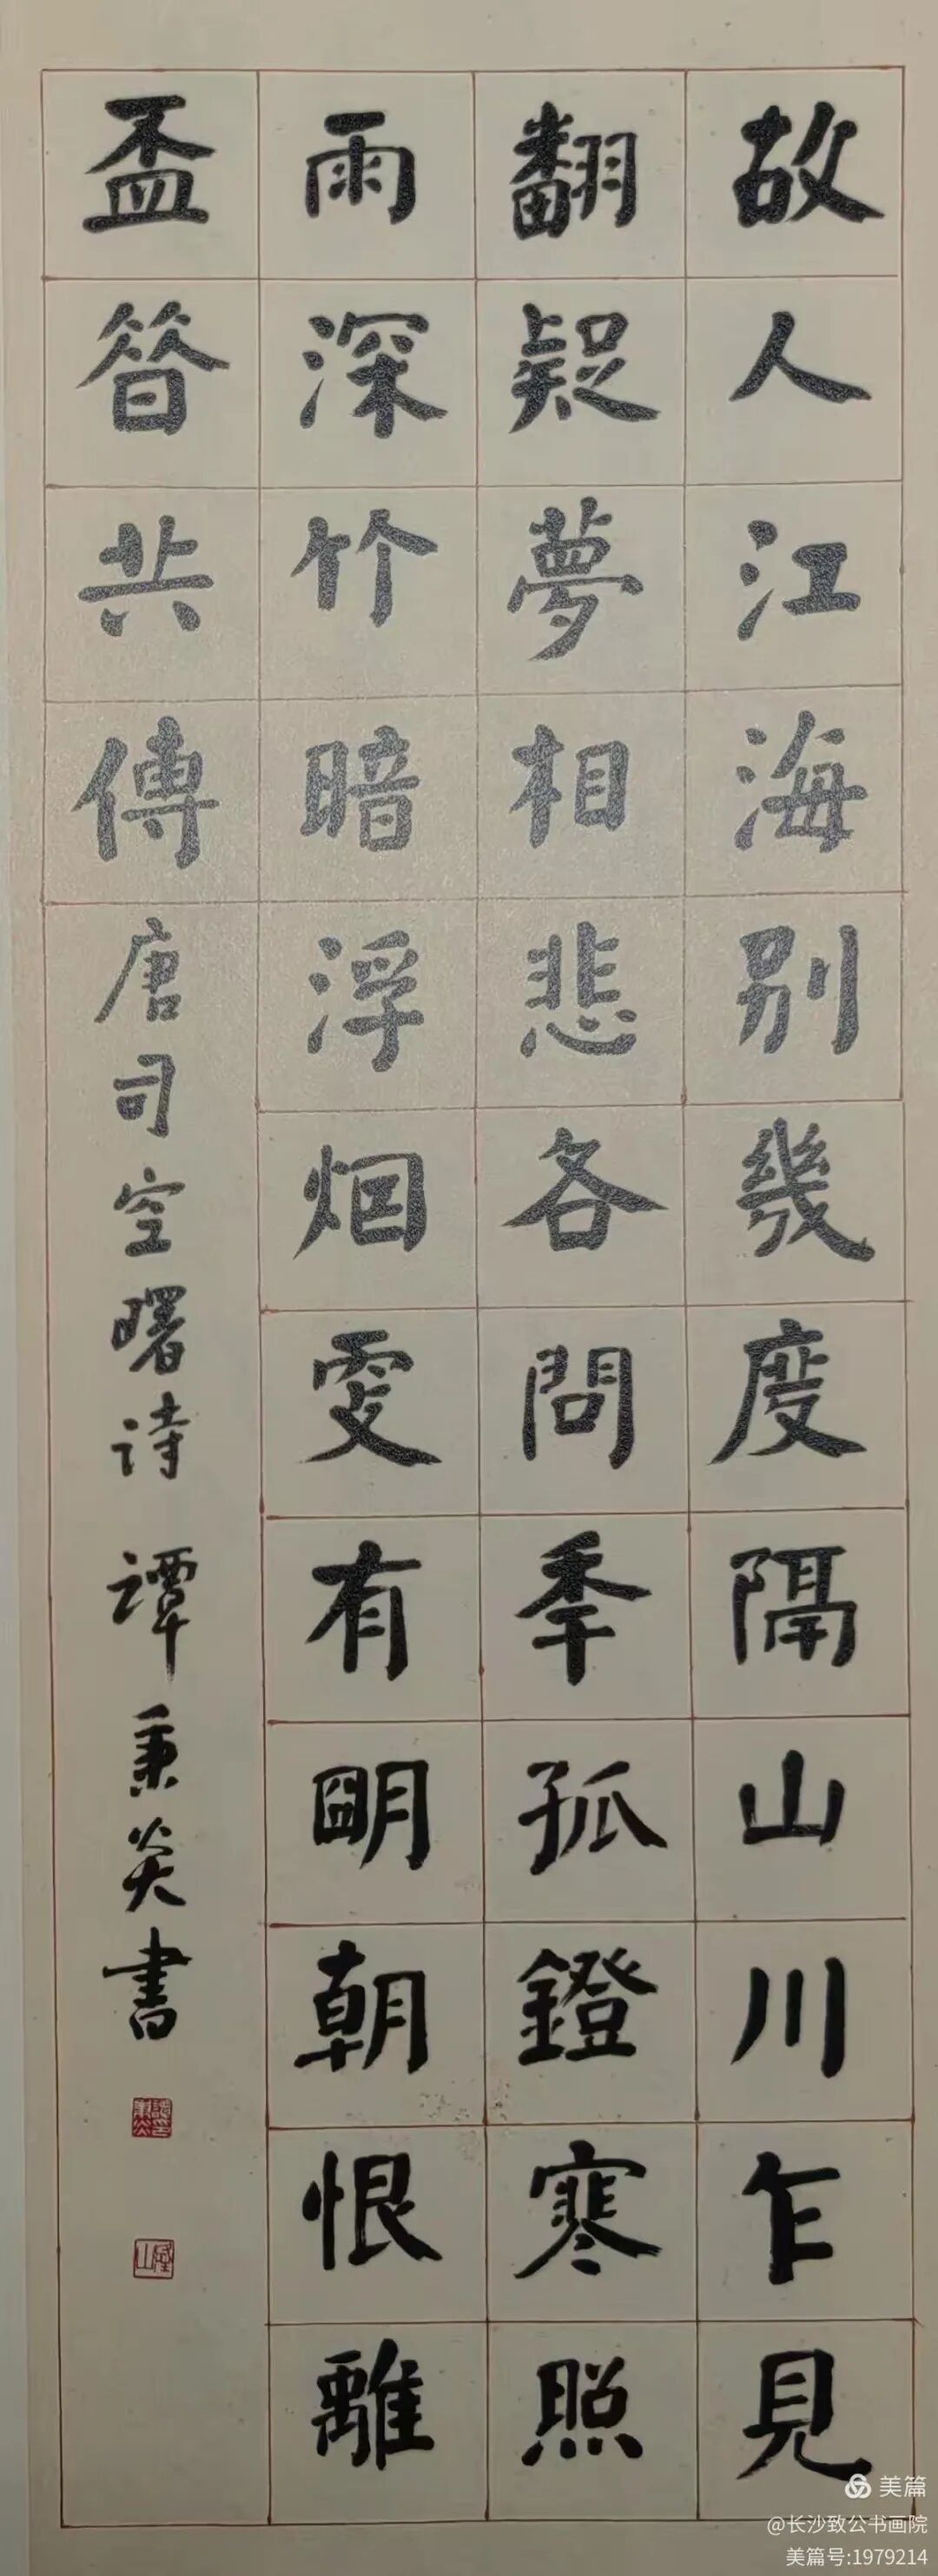 故人江海别幾度隔山川乍見
翻疑夢相悲各問季孤鐙寒照
雨深竹暗浮烟更有朙朝恨離
盃昝共傳
唐司空曙诗 譚秉炎書
美篇
@长沙致公书画院
美篇号:1979214